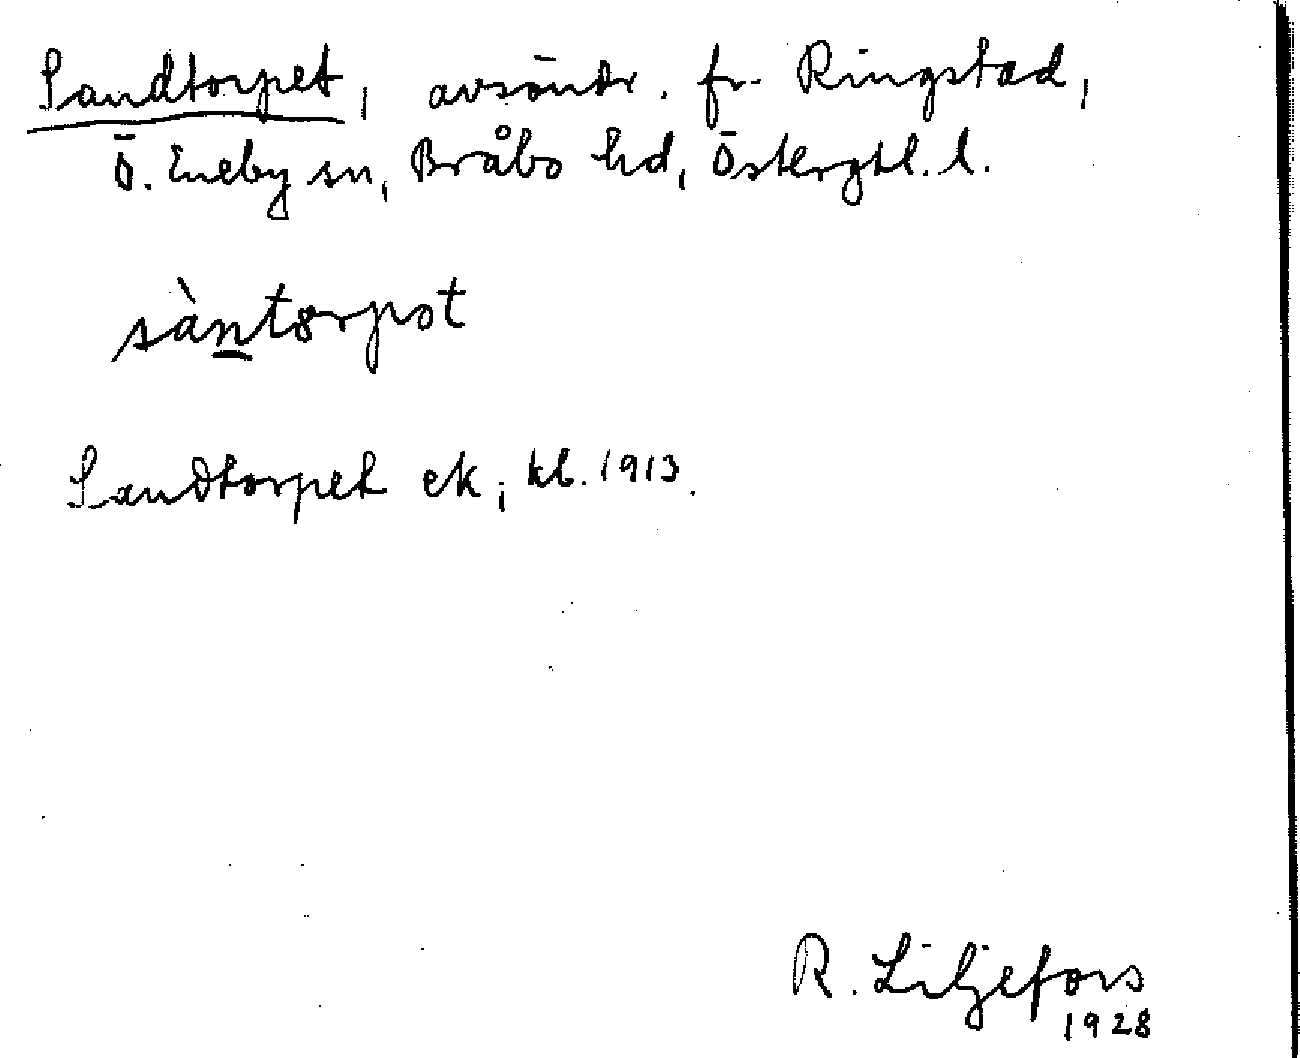 Sandtorpet, avsöndr. fr. Ringstad,
Ö. Eneby sn, Bråbo hd, Östergtl. l.
sàntorpot
Sandtorpet ek; kb. 1913.
R. Liljefors
1928